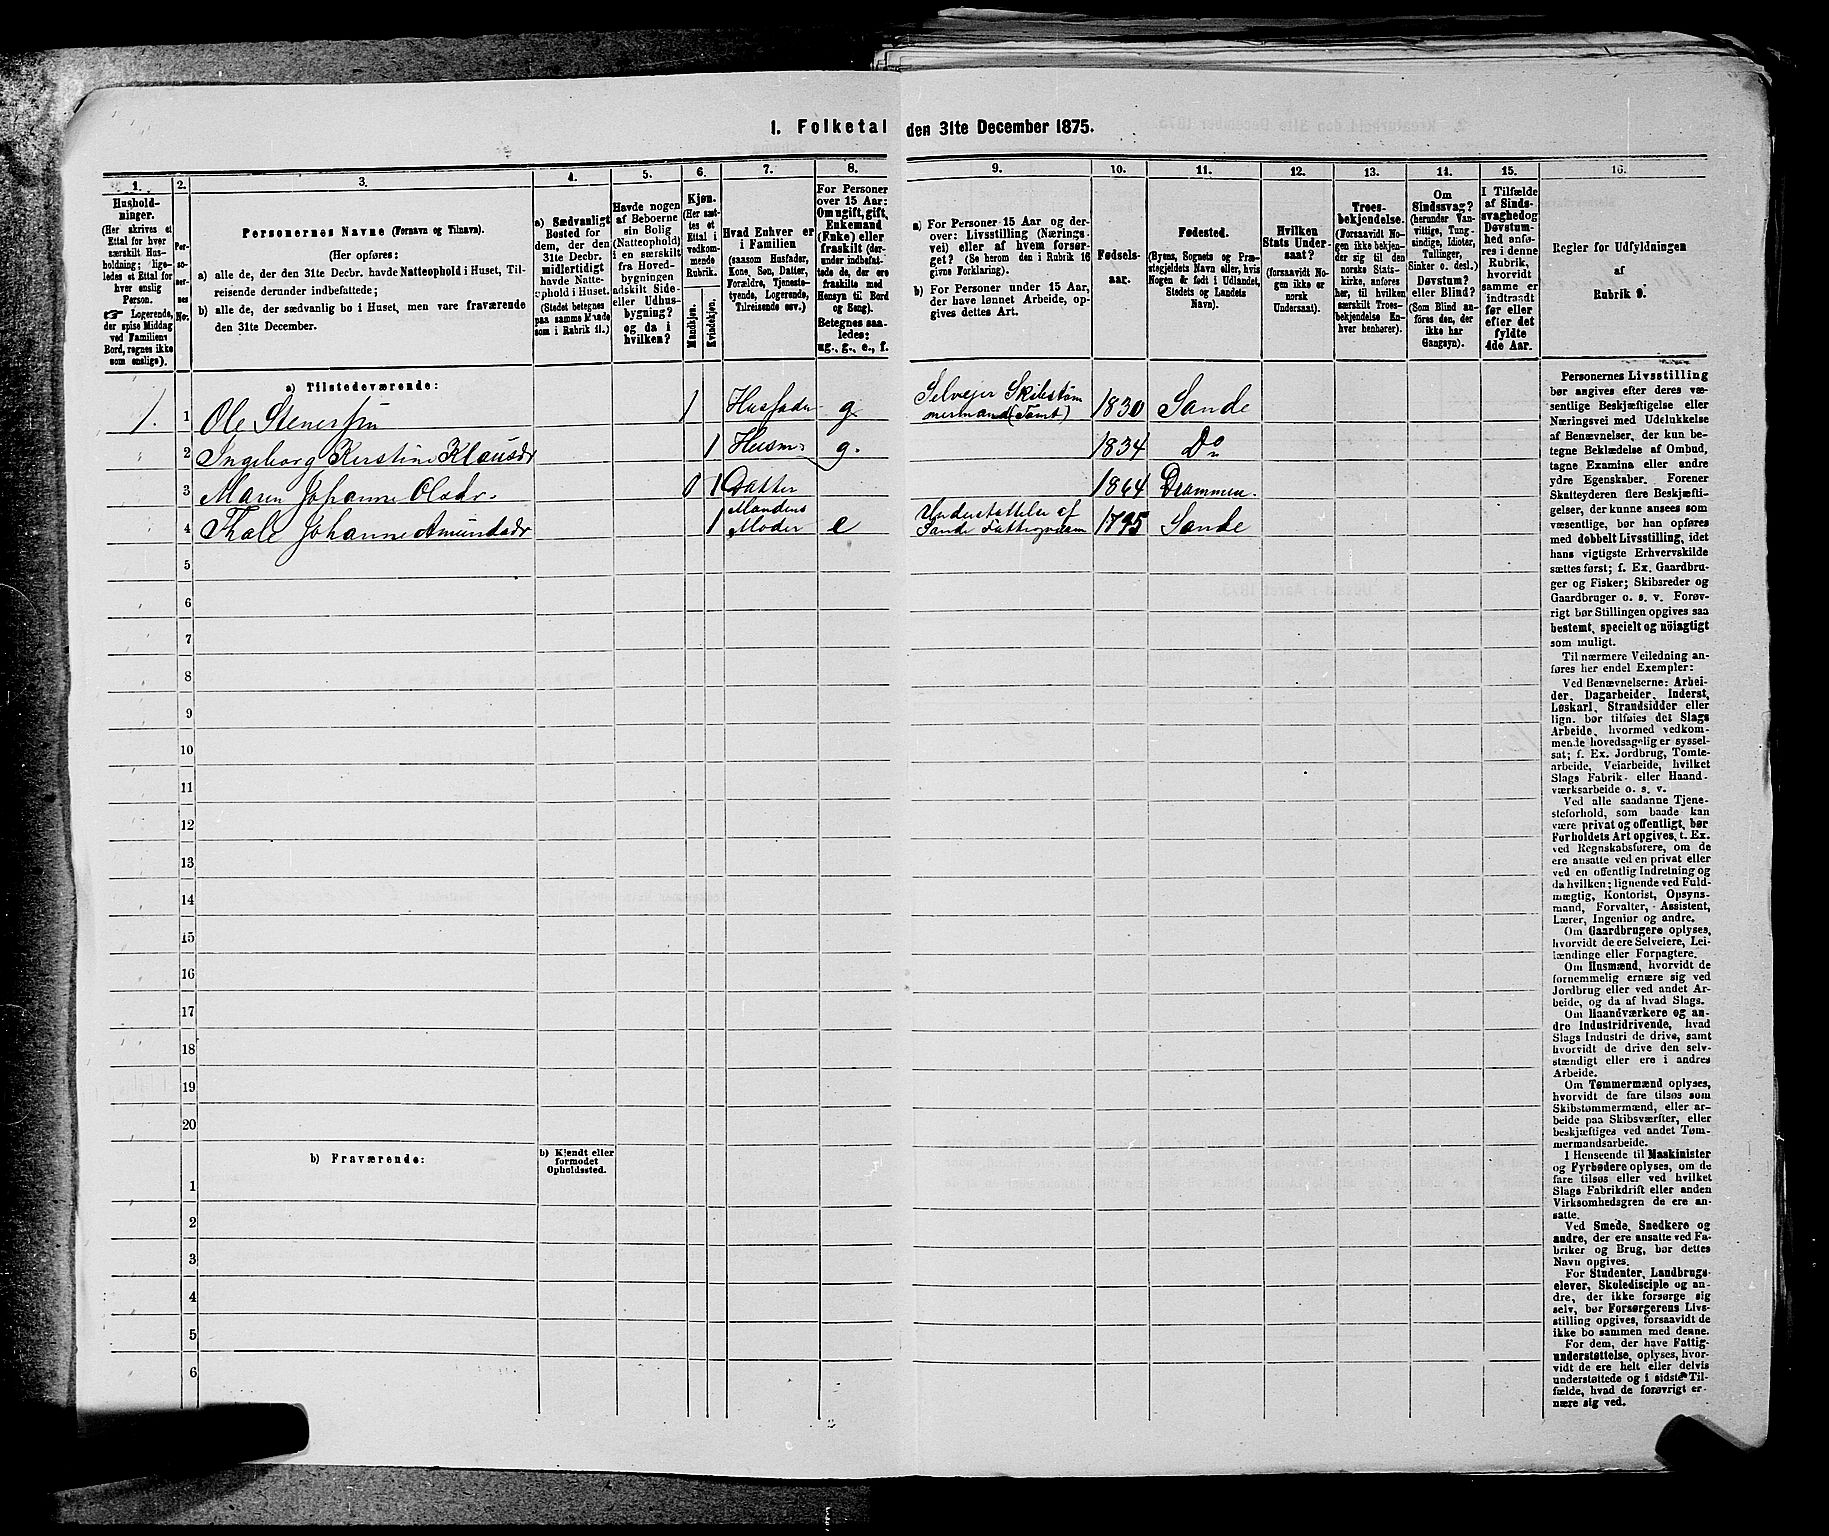 1. Folketal den 31te December 1875.
1. 2. 3. 4. 5. 6. 7. 8. 9. 10. 11. 12. 13. 14. 15. 16.
Hushold-
ninger.
(Her skrives et
Ettal for hver
særskilt Hus-
holdning; lige-
ledes et Ettal for
hver enslig
Person.
☞ Logerende,
der spise Middag
ved Familiens
Bord, regnes ikke
som enslige).
Per-
so-
ner-
nes
No.
Personernes Navne (Fornavn og Tilnavn).
(Her opføres:
a) alle de, der den 31te Decbr. havde Natteophold i Huset, Til-
reisende derunder indbefattede;
b) alle de, der sædvanlig bo i Huset, men vare fraværende
den 31te December.
a) Sædvanligt
Bosted for
dem, der den
31te Decbr.
midlertidigt
havde Natte-
ophold i Huset.
(Stedet betegnes
paa samme Maade
som i Rubrik 11.)
Havde nogen
af Beboerne
sin Bolig
(Natteophold)
i en særskilt
fra Hoved-
bygningen
adskilt Side-
eller Udhus-
bygning?
og da i
hvilken?
Kjøn.
(Her sæt-
tes et
Ettal i
vedkom-
mende
Rubrik.
Mandkjøn.
Kvindekjøn.
Hvad Enhver er
i Familien
(saasom Husfader,
Kone, Søn, Datter,
Forældre, Tjeneste-
tyende, Logerende,
Tilreisende osv.)
For Personer
over 15 Aar:
Om ugift, gift,
Enkemand
(Enke) eller
fraskilt (der-
under indbefat-
tede de, der ere
fraskilte med
Hensyn til Bord
og Seng).
Betegnes saa-
ledes:
ug., g., e., f.
a) For Personer 15 Aar og der-
over: Livsstilling (Nærings-
vei) eller af hvem forsør-
get? (Se herom den i Rubrik 16
givne Forklaring).
b) For Personer under 15 Aar,
der have lønnet Arbeide, op-
gives dettes Art.
Fødsels-
aar.
Fødested.
(Byens, Sognets og Præ-
stegjeldets Navn, eller, hvis
Nogen er født i Udlandet,
Stedets og Landets
Navn).
Hvilken
Stats Under-
saat?
(forsaavidt No-
gen ikke er
norsk
Undersaat).
Troes-
bekjendelse.
(Forsaavidt No-
gen ikke bekjen-
der sig til den
norske Stats-
kirke, anføres
her, til hvilken
særskilt Troes-
bekjendelse En-
hver henhører).
Om
Sindssvag?
(herunder Van-
vittige, Idioter,
Tullinger,
Sinker o. desl.)
Døvstum?
eller Blind?
(Som Blind an-
føres den, der
ikke har
Gangsyn).
I Tilfælde
af Sinds-
svaghed og
Døvstum-
hed anfø-
res i denne
Rubrik,
hvorvidt
samme er
indtraadt
før eller
efter det
fyldte
4de Aar.
Regler for Udfyldningen
af
Rubrik 9.
a) Tilstedeværende:
1. 1 Ole Stenersen 1 Husfader g. Selveier Skibstøm
mermand (Tomt) 1830 Sande
2 Ingeborg Kerstine Klausdr 1 Husm. g. 1834 Do
3 Maren Johanne Olsdr. 0 1 Datter 1864 Drammen.
4 Thale Johanne Amundsdr 1 Mandens
Moder e Understøttelse af
Sande Fattigvæsen 1795 Sande
5
6
7
8
9
10
11
12
13
14
15
16
17
18
19
20
b) Fraværende:
b) Kjendt eller
formodet
Opholdssted.
1
2
3
4
5
6
Personernes Livsstilling
bør angives efter deres væ-
sentlige Beskjæftigelse eller
Næringsvei med Udelukkelse
af Benævnelser, der kun be-
tegne Beklædelse af Ombud,
tagne Examina eller andre
ydre Egenskaber. Forener
Skatteyderen flere Beskjæfti-
gelser, der kunne ansees som
væsentlige, bør han opføres
med dobbelt Livsstilling, idet
hans vigtigste Erhvervskilde
sættes først; f. Ex. Gaardbru-
ger og Fisker; Skibsreder og
Gaardbruger o. s. v. Forøv-
rigt bør Stillingen opgives saa
bestemt, specielt og nöiagtigt
som muligt.
Til nærmere Veiledning an-
føres her endel Exempler:
Ved Benævnelserne: Arbei-
der, Dagarbeider, Inderst,
Løskarl, Strandsidder eller
lign. bør tilføies det Slags
Arbeide, hvormed vedkom-
mende hovedsagelig er syssel-
sat; f. Ex. Jordbrug, Tomte-
arbeide, Veiarbeide, hvilket
Slags Fabrik- eller Haand-
værksarbeide o. s. v.
Ved alle saadanne Tjene-
steforhold, som baade kan
være privat og offentligt, bør
Forholdets Art opgives, t. Ex.
ved Regnskabsførere, om de
ere ansatte ved en privat eller
ved en offentlig Indretning og
da hvilken; lignende ved Fuld-
mægtig, Kontorist, Opsyns-
mand, Forvalter, Assistent,
Lærer, Ingeniør og andre.
Om Gaardbrugere oplyses,
hvorvidt de ere Selveiere, Lei-
lændinge eller Forpagtere.
Om Husmænd, hvorvidt de
fornemmelig ernære sig ved
Jordbrug eller ved andet Ar-
beide, og da af hvad Slags.
Om Haandværkere og an-
dre Industridrivende, hvad
Slags Industri de drive, samt
hvorvidt de drive den selv-
stændigt eller ere i andres
Arbeide.
Om Tømmermænd oplyses,
hvorvidt de fare tilsøs som
Skibstømmermænd, eller ar-
beide paa Skibsværfter, eller
beskjæftiges ved andet Tøm-
mermandsarbeide.
I Henseende til Maskinister
og Fyrbødere oplyses, om de
fare tilsøs eller ved hvilket
Slags Fabrikdrift eller anden
Virksomhedsgren de ere an-
satte.
Ved Smede, Snedkere og
andre, der ere ansatte ved Fa-
briker og Brug, bør dettes
Navn opgives.
For Studenter, Landbrugs-
elever, Skoledisciple og an-
dre, der ikke forsørge sig
selv, bør Forsørgerens Livs-
stilling opgives, forsaavidt de
ikke bo sammen med denne.
For dem, der have Fattig-
understøttelse, oplyses, hvor-
vidt de ere helt eller delvis
understøttede og i sidste Til-
fælde, hvad de forøvrigt er-
nære sig ved.